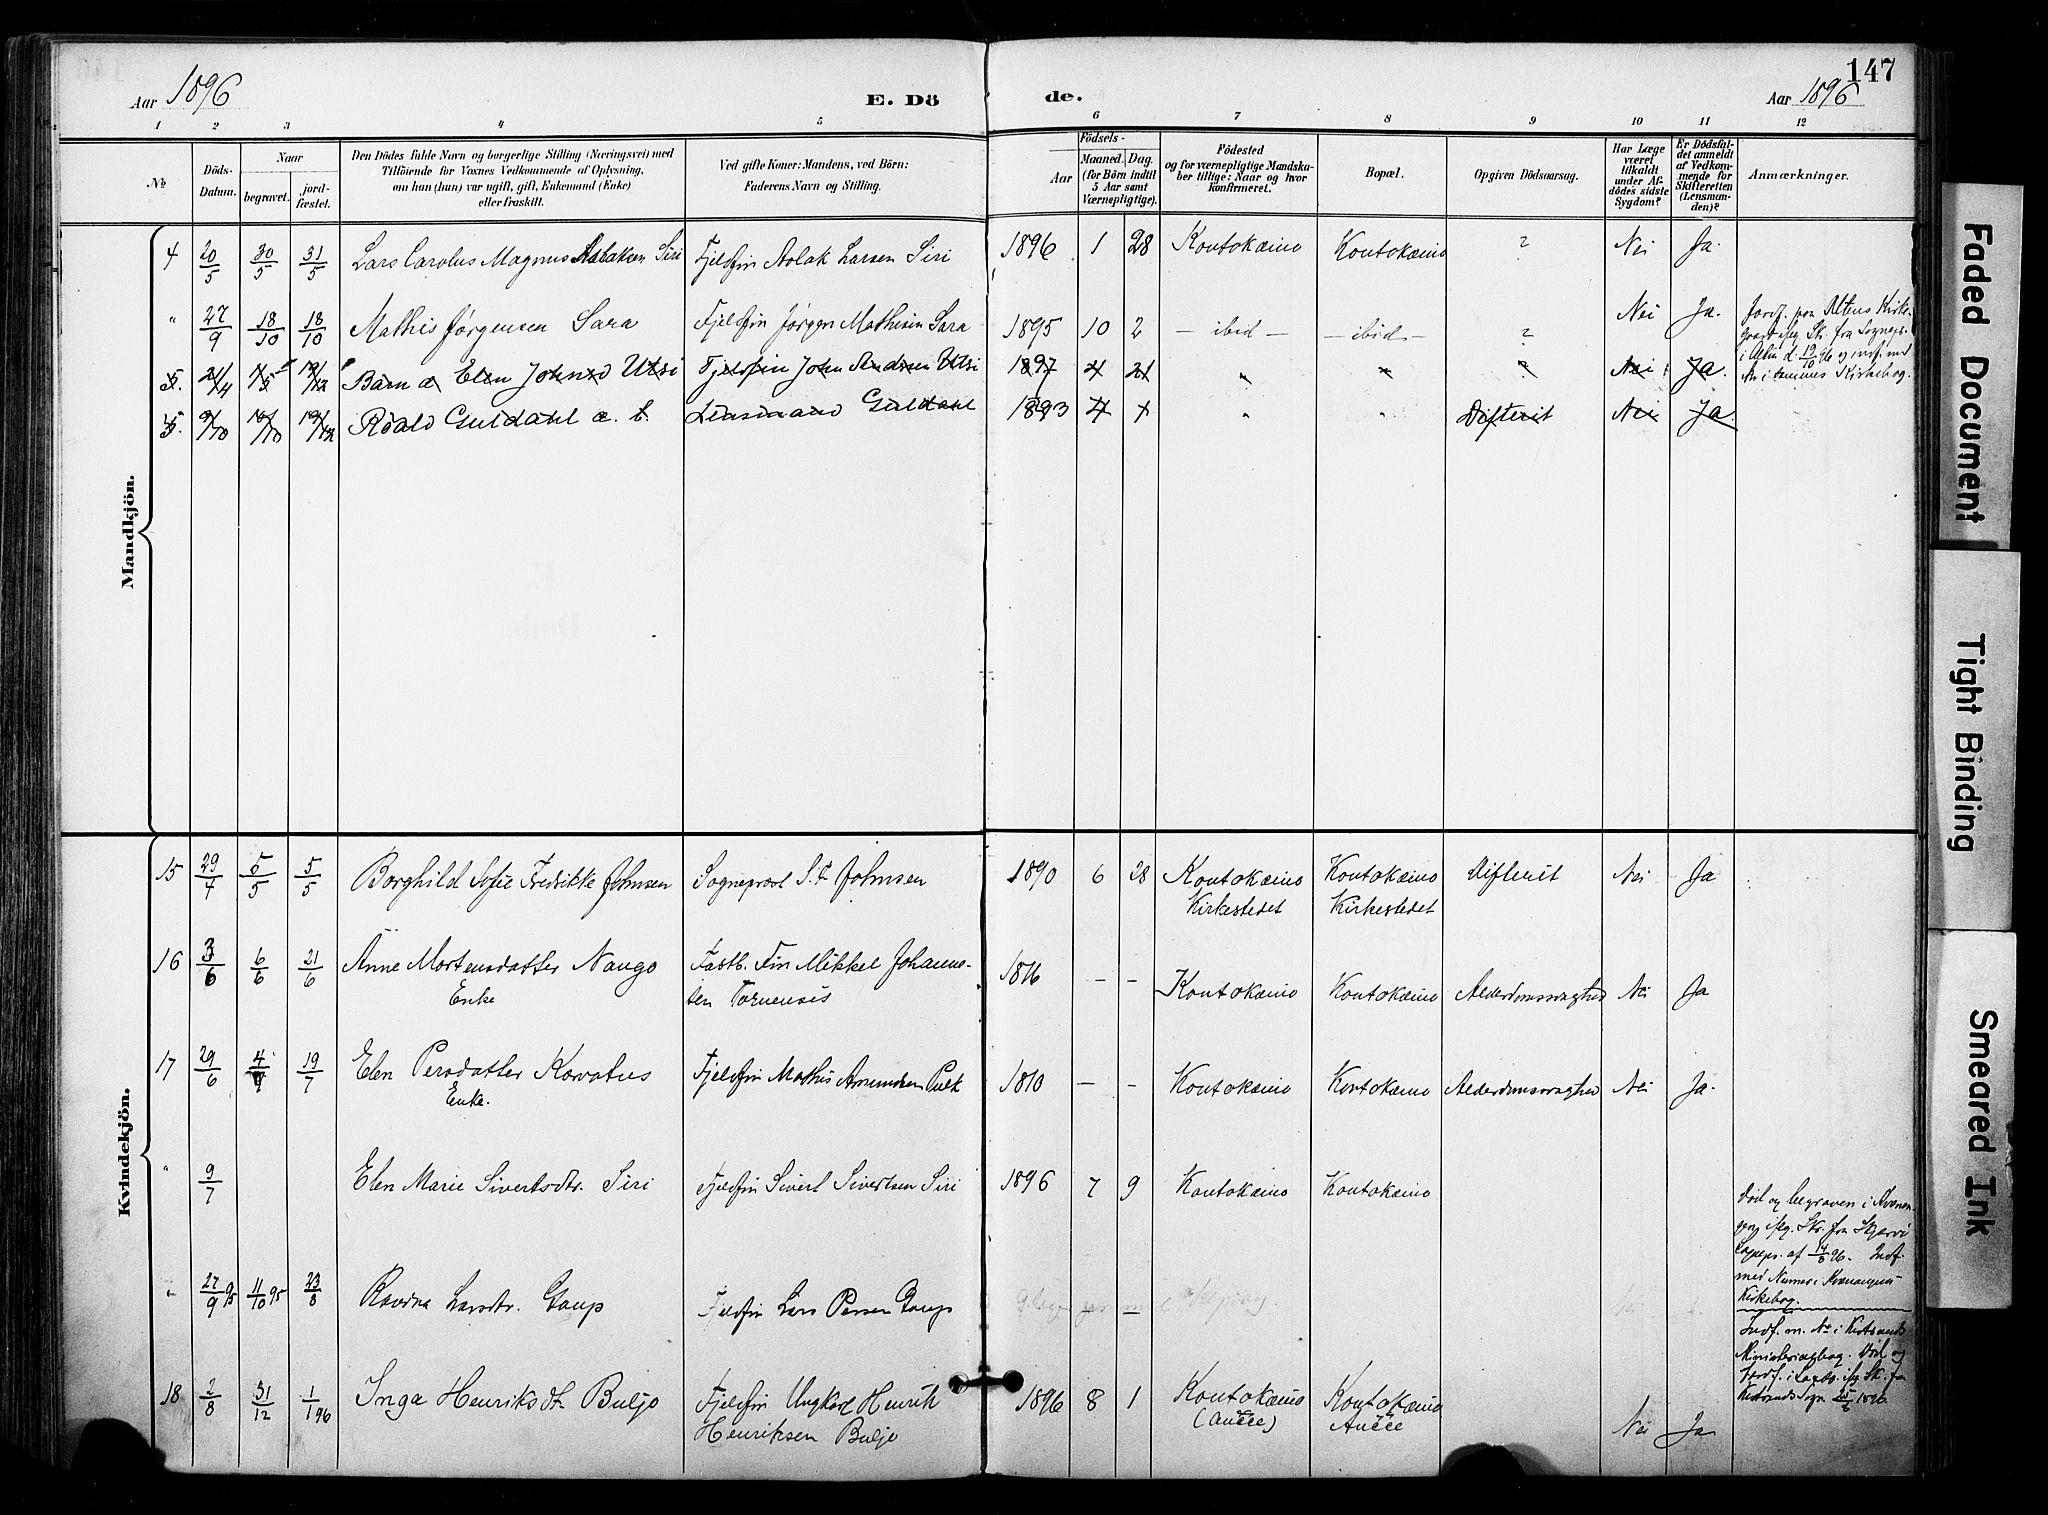 147
Aar 1896
E. Dö
de.
Aar 1896
1 2 3 4 5 6 7 8 9 10 11 12
No
Döds-Datum.
Naar
begravet.
jord-fæstet.
Den Dödes fulde Navn og borgerlige Stilling (Næringsvei) med
Tilföiende for Voxnes Vedkommende af Oplysning,
om han (hun) var ugift, gift, Enkemand (Enke)
eller fraskilt.
Ved gifte Koner: Mandens, ved Börn:
Faderens Navn og Stilling.
Födsels-
Aar
Maaned.
Dag.
(for Börn indtil
5 Aar samt
Værnepligtige).
Födested
og for værnepligtige Mandska-
ber tillige: Naar og hvor
Konfirmeret.
Bopæl.
Opgiven Dödsaarsag.
Har Læge
været
tilkaldt
under Af-
dödes sidste
Sygdom?
Er Dödsfal-
det anmeldt
af Vedkom-
mende for
Skifteretten
(Lensman-
den)?
Anmærkninger.
Mandkjön.
4 20/5 30/5 31/5 Lars Carolus Magnus Aslaksen Siri Fjeldfin Aslak Larsen Siri 1896 1 28 Koutokæino Koutokæino ? Nei Ja.
" 27/9 18/10 18/10 Mathis Jørgensen Sara Fjeldfin Jørgen Mathisen Sara 1895 10 2 – ibid – – ibid – ? Nei Ja.
Jordf. paa Altens Kirke-
gaard ifølg. Sk. fra Sogneps.
i Alten d. 19/10 96 og indf. med
No i sammes Kirkebog.
5. 21/4 Barn a Elen Johnsd Utsi Fjeldfin John Andersen Utsi 1897 4 21 " " ? Nei Ja.
5. 9/10 Roald Guldahl e. b. Lensmand Guldahl 1893 4 " " Difterit Nei Ja
Kvindekjön.
15 29/4 5/5 5/5 Borghild Sofie Fredrikke Johnsen Sogneprest S. F. Johnsen 1890 6 28 Koutokæino Koutokæino Difterit Nei Ja
Kirkestedet Kirkestedet
16 3/6 6/6 21/6 Anne Mortensdatter Nango Fastb. Fin Mikkel Johanne-
Enke sen Tornensis
1816 – – Koutokæino Koutokæino Alderdomssvaghed Nei Ja
17 29/6 4/7 19/7 Elen Persdatter Kovatus Fjeldfin Mathis Amundsen Pulk 1810 – – Koutokæino Koutokæino Alderdomssvaghed Nei Ja.
Enke.
" 9/7 Elen Marie Sivertsdtr. Siri Fjeldfin Sivert Sivertsen Siri 1896 7 9 Koutokæino Koutokæino
Död og begraven i Kvænan-
gen, ifølg. Sk. fra Skjervø
Sogneps. af 14/8 96. Indf.
med Numer i Kvænangens
Kirkebog.
" 27/9 95 11/10 95 23/8 Ravna Larsdtr. Gaup Fjeldfin Lars Persen Gaup
Indf. m. No i Kistrands
Ministerialbog. Död og
jordf. i Laxbs. ifg. Sk. fra
Kistrands Sogn. 25/8 1896
18 2/8 31/12 1/1 96 Inga Henriksdt. Buljo Fjeldfin Ungkarl Henrik
Henriksen Buljo
1896 8 1 Koutokæino Koutokæino Nei Ja
(Aučče) Aučče
Faded Document
Tight Binding
Smeared Ink